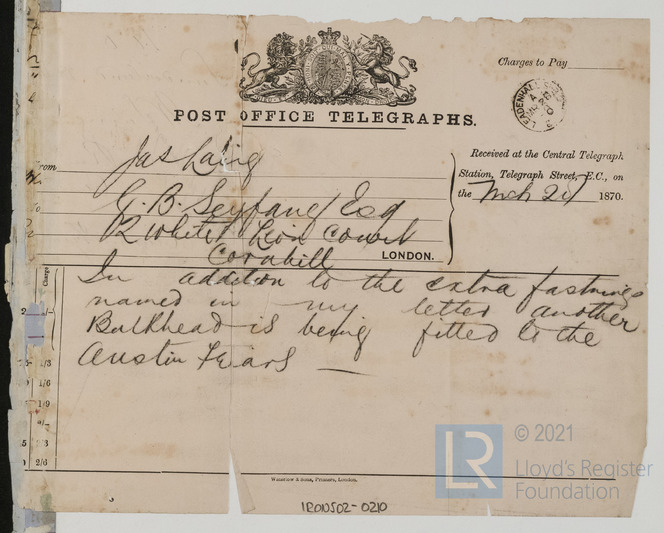 Charges to Pay
POST OFFICE TELEGRAPHS.
LEADENHALL
Received at the Central Telegraph
Station, Telegraph Street, E.C., on
the Mch 21 1870.
From Jas Laing
To G. B. Seyfang Esq
2 White Lion Court
Cornhill LONDON.
Charge
In addition to the extra fastnings
named in my letter another
Bulkhead is being fitted to the
Austin Friars —
1/3
1/6
1/9
2/3
2/6
Waterlow & Sons, Printers, London.
IRON502-0210
LR
© 2021
Lloyd's Register
Foundation